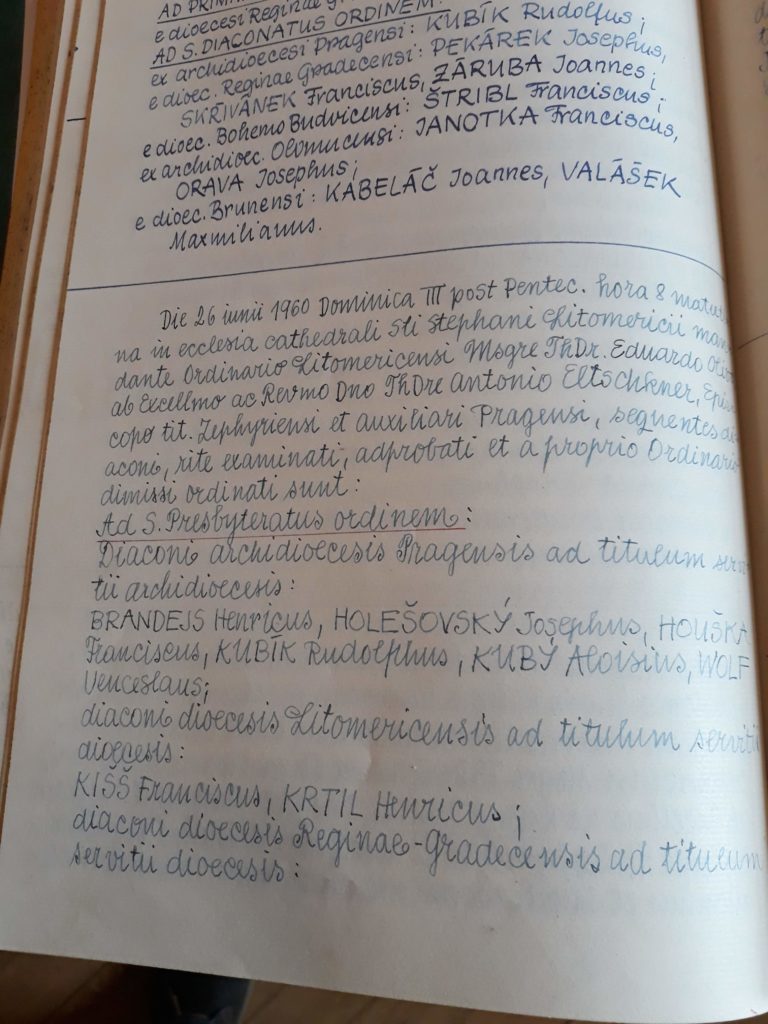 AD PRIM
e dioecesi Reginae
AD S. DIACONATUS ORDINEM:
ex archidioecesi Pragensi: KUBÍK Rudolfus;
e dioec. Reginae Gradecensi: PEKÁREK Josephus,
SKŘIVÁNEK Franciscus, ZÁRUBA Joannes;
e dioec. Bohemo Budvicensi: ŠTRIBL Franciscus;
ex archidioec. Olomucensi: JANOTKA Franciscus,
ORAVA Josephus;
e dioec. Brunensi: KABELÁČ Joannes, VALÁŠEK
Maxmilianus.
Die 26 iunii 1960 Dominica III post Pentec. hora 8 matuti
na in ecclesia cathedrali Sti Stephani Litomericii man
dante Ordinario Litomericensi Msgre ThDr. Eduardo
ab Excellmo ac Revmo Dno ThDre Antonio Eltschkner, Epis
copo tit. Zephyriensi et auxiliari Pragensi, sequentes di
aconi, rite examinati, adprobati et a proprio Ordinario
dimissi ordinati sunt:
Ad S. Presbyteratus ordinem:
Diaconi archidioecesis Pragensis ad titulum servi
tii archidioecesis:
BRANDEJS Henricus, HOLEŠOVSKÝ Josephus, HOUŠKA
Franciscus, KUBÍK Rudolphus, KUBÝ Aloisius, WOLF
Venceslaus;
diaconi dioecesis Litomericensis ad titulum servitii
dioecesis:
KIŠŠ Franciscus, KRTIL Henricus;
diaconi dioecesis Reginae-Gradecensis ad titulum
servitii dioecesis: